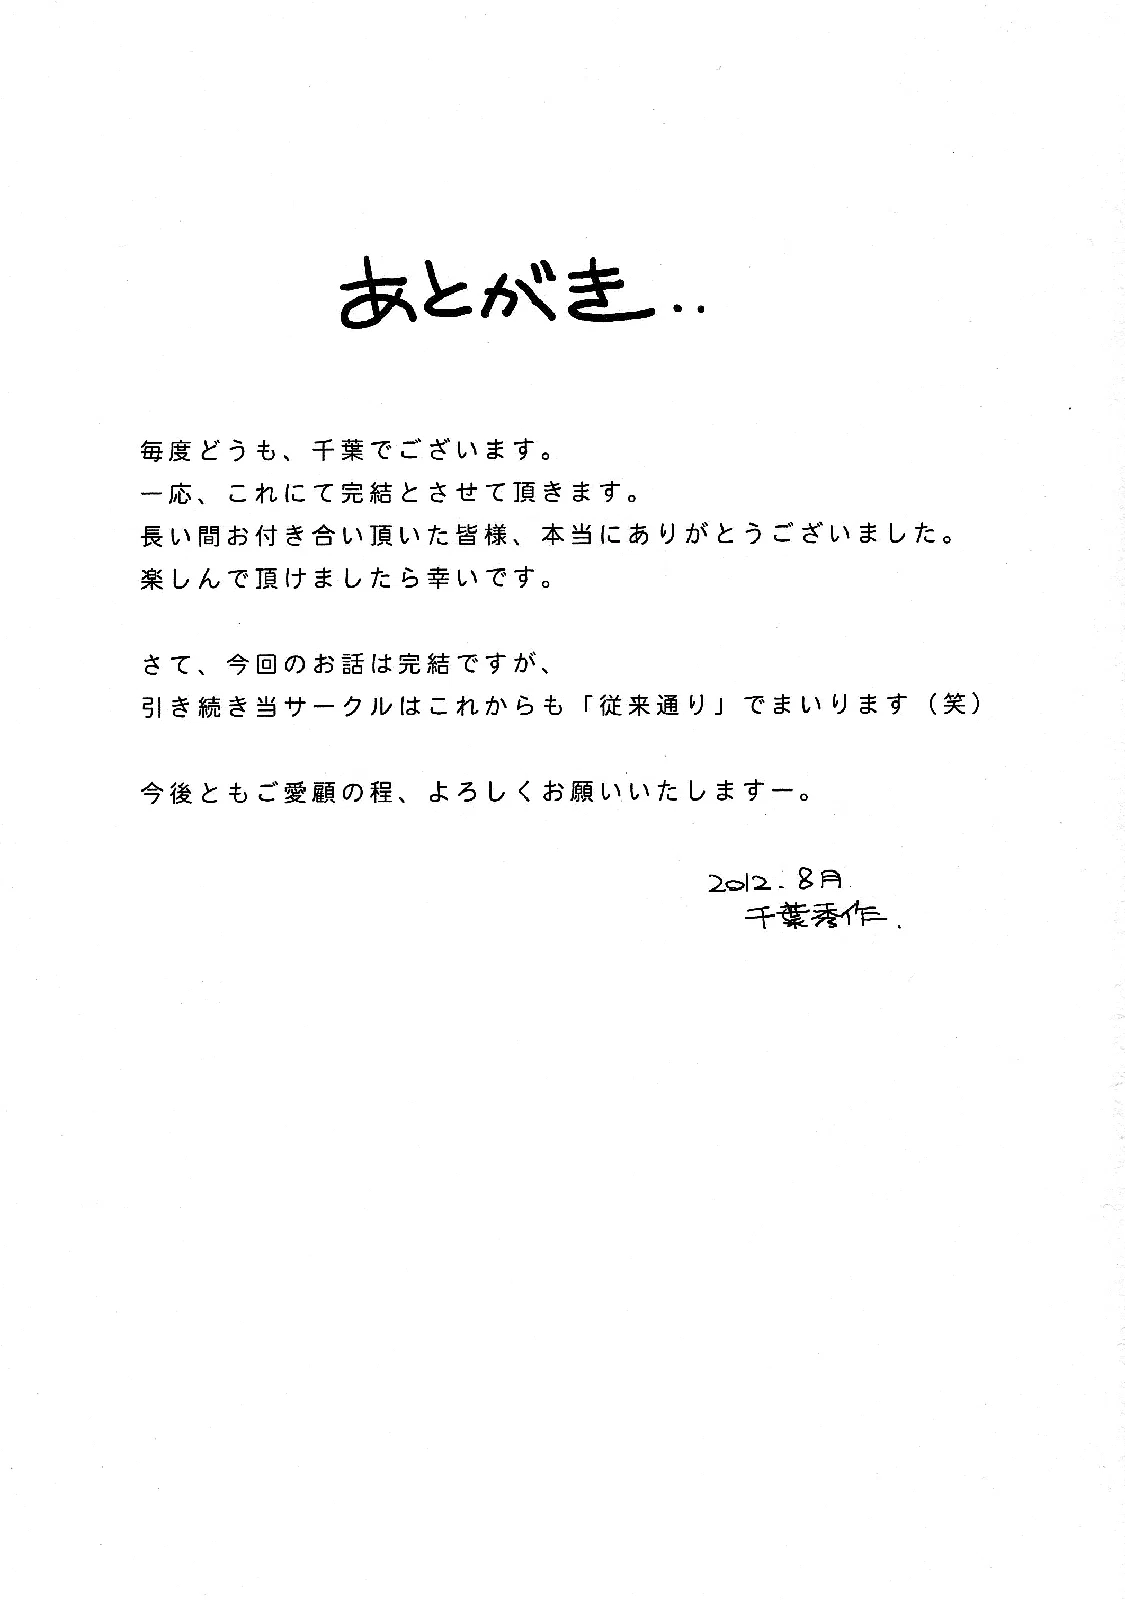 あとがき..
毎度どうも、千葉でございます。
一応、これにて完結とさせて頂きます。
長い間お付き合い頂いた皆様、本当にありがとうございました。
楽しんで頂けましたら幸いです。
さて、今回のお話は完結ですが、
引き続き当サークルはこれからも「従来通り」でまいります（笑）
今後ともご愛顧の程、よろしくお願いいたしますー。
2012.8月
千葉秀作.